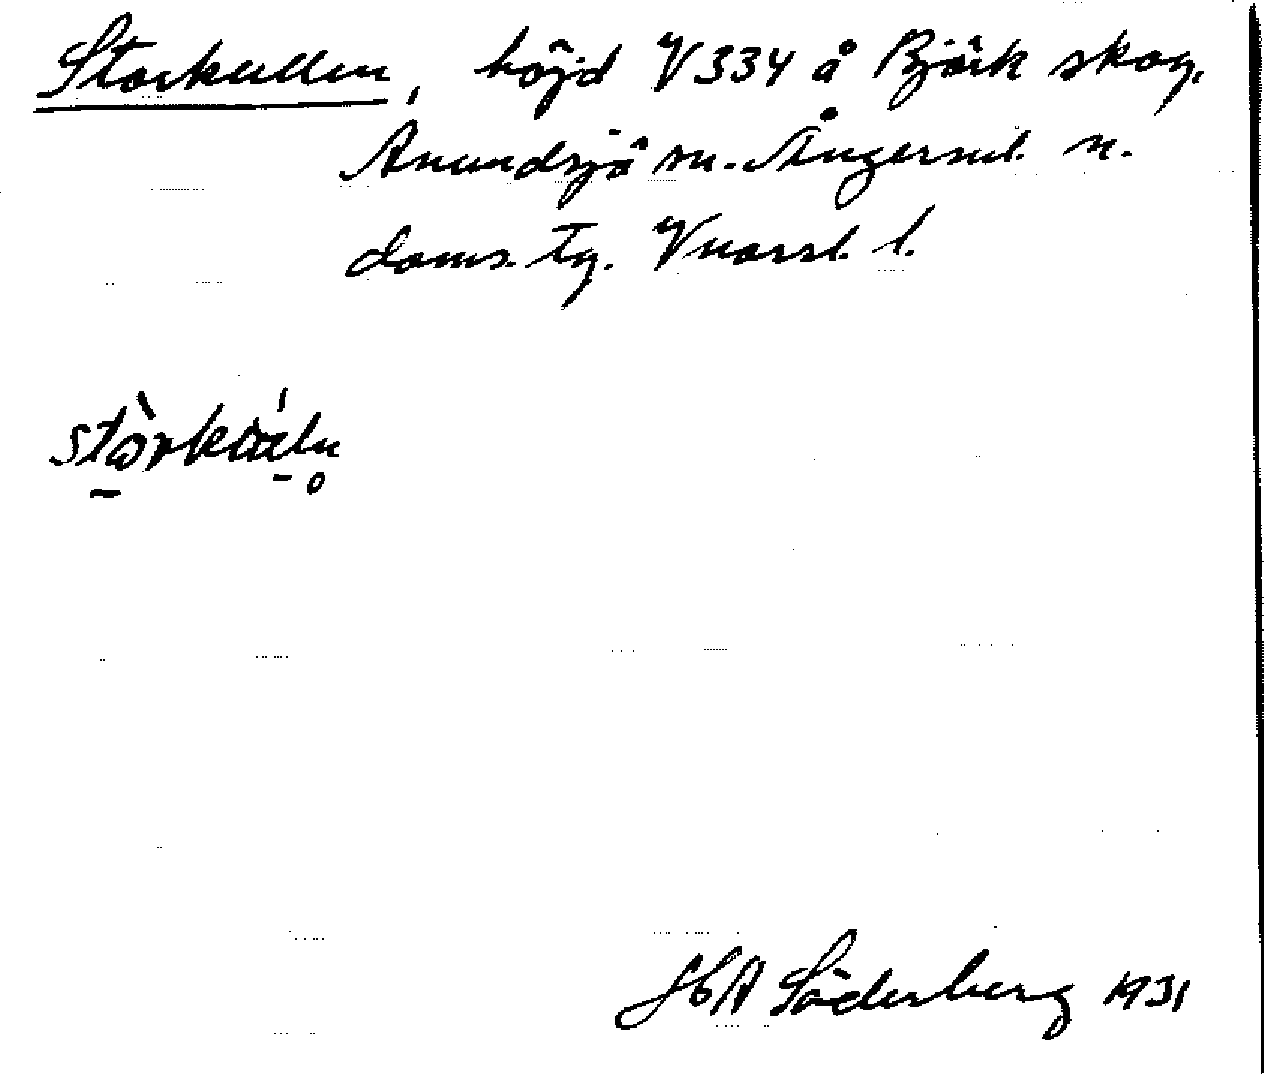 Storkullen, höjd V 334 å Björk skog,
Anundsjö sn. Ångerml. n.
doms. tg. Vnorrl. l.
HA Söderberg 1931